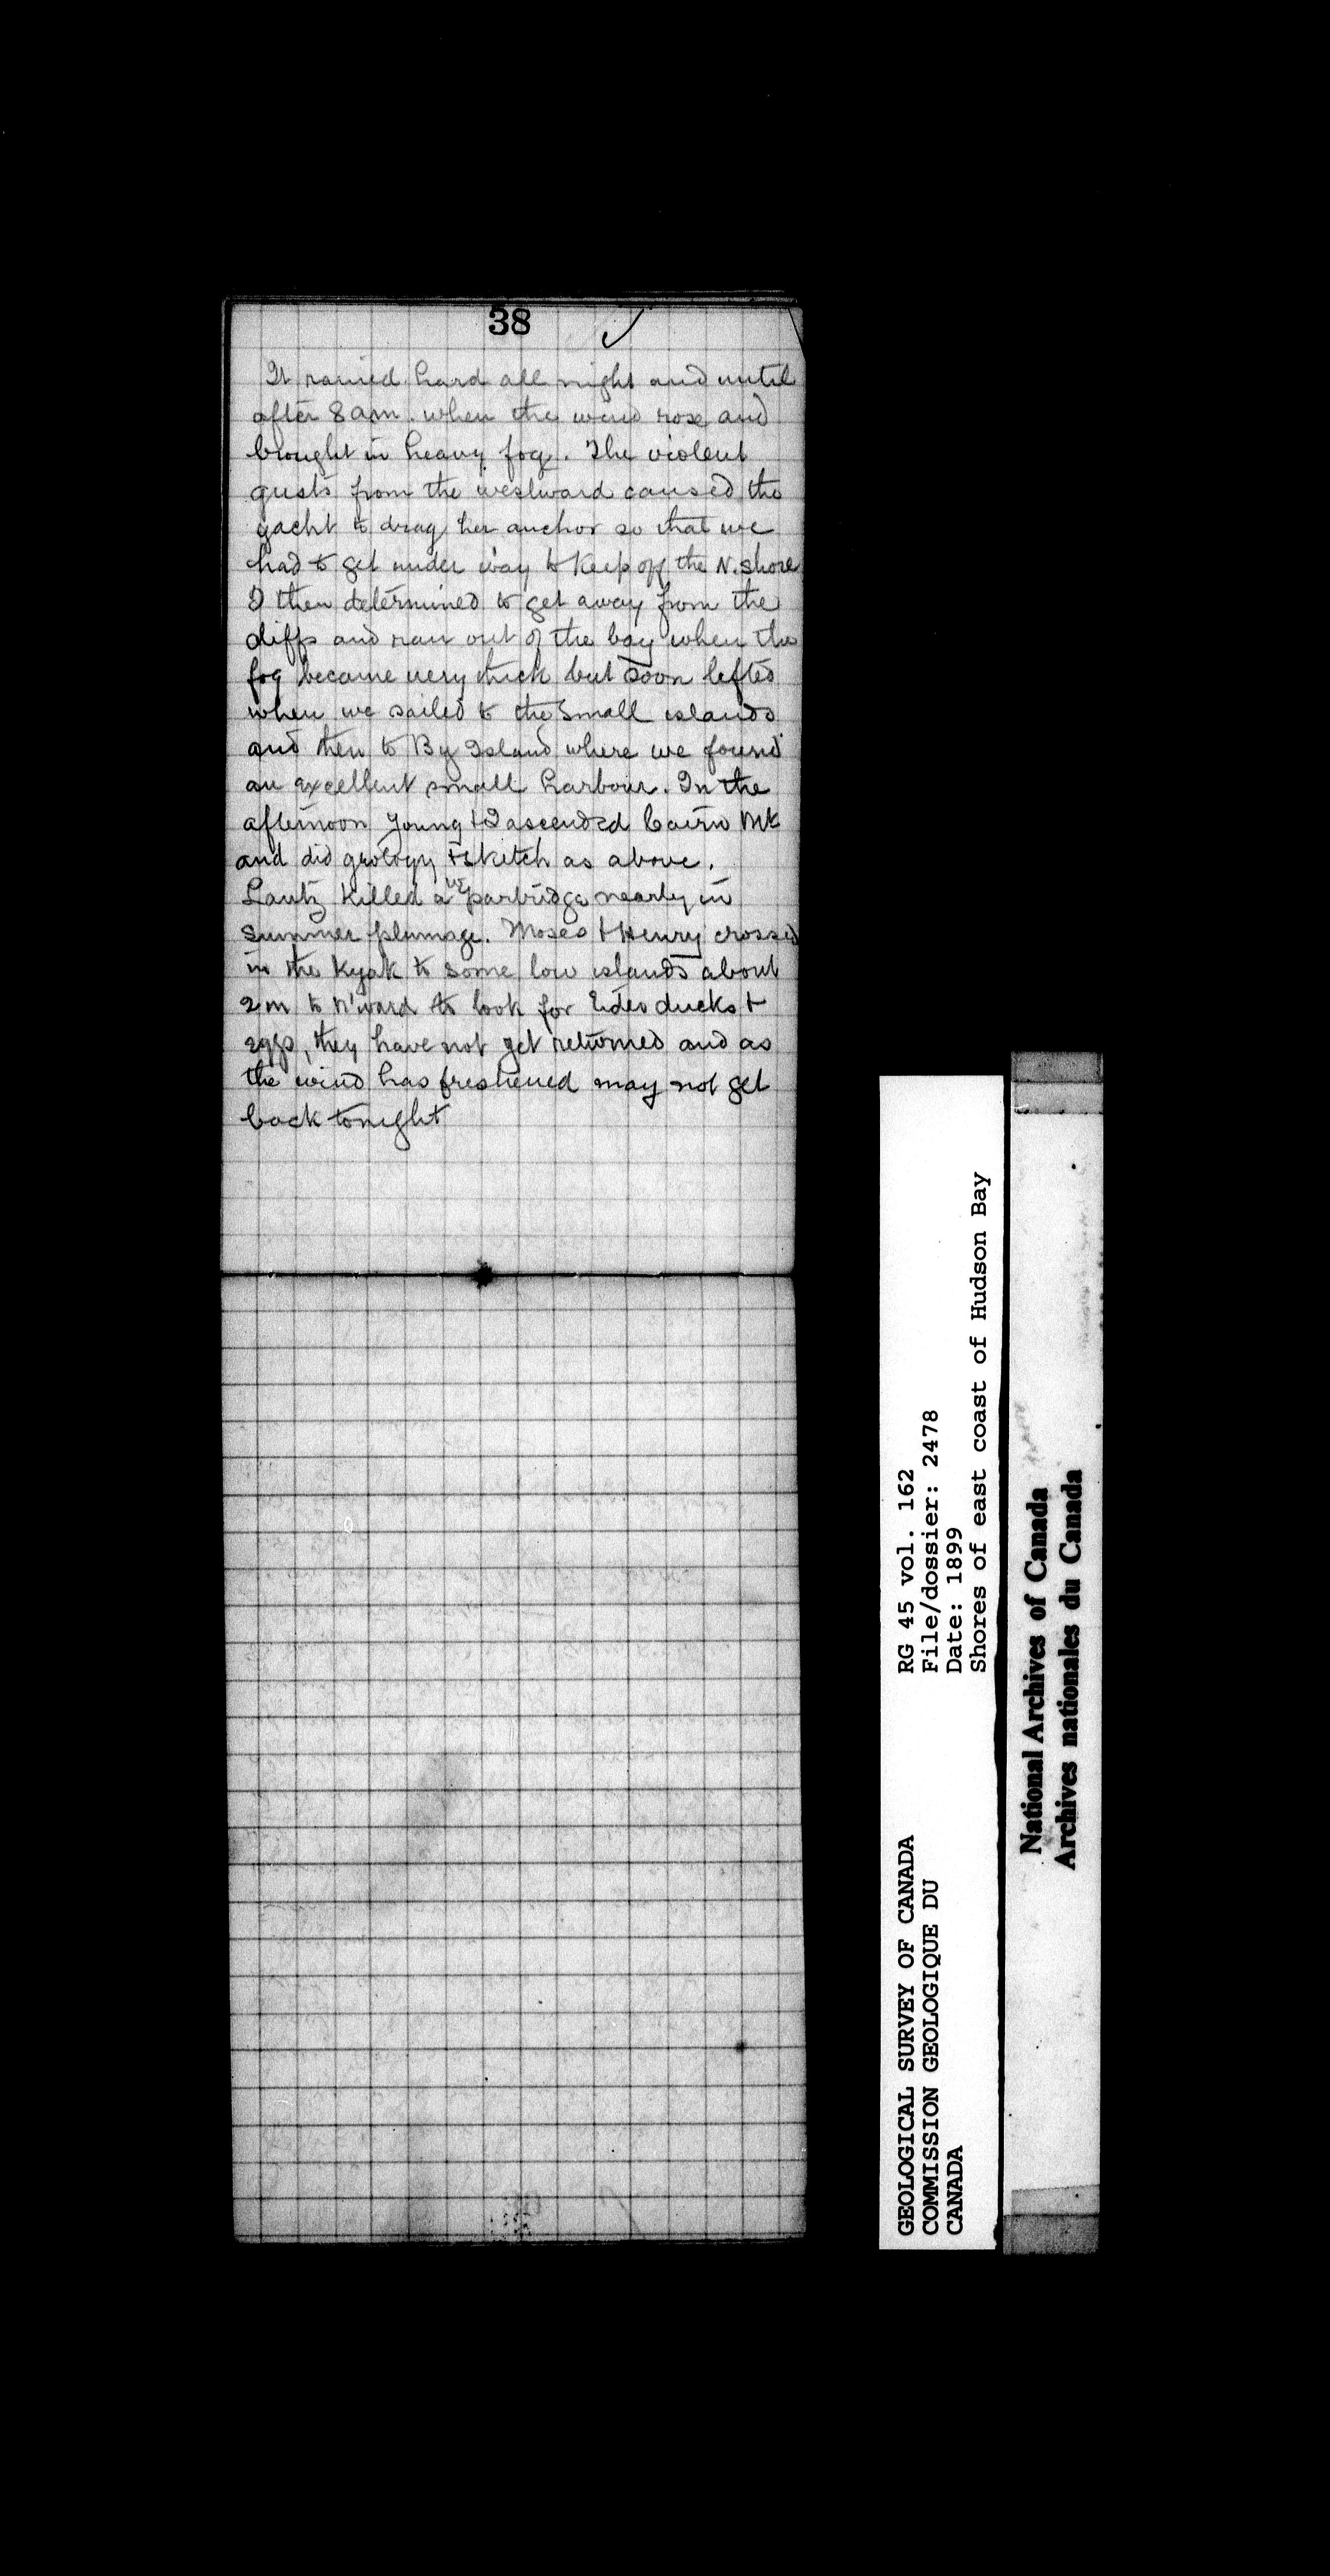 38
It rained hard all night and until
after 8 am. when the wind rose and
brought in heavy fog. The violent
gusts from the westward caused the
yacht to drag her anchor so that we
had to get under way to keep off the N. shore
I then determined to get away from the
cliffs and ran out of the bay when the
fog became very thick but soon lifted
when we sailed to the small islands
and then to Big Island where we found
an excellent small harbour. In the
afternoon Young & I ascended Cairn Mt
and did geology & sketch as above.
Lantz killed a partridge nearly in
summer plumage. Moses & Henry crossed
in the Kyak to some low islands about
2 m to N'ward to look for Eider ducks &
eggs, they have not yet returned and as
the wind has freshened may not get
back tonight
GEOLOGICAL SURVEY OF CANADA
COMMISSION GEOLOGIQUE DU
CANADA
RG 45 vol. 162
File/dossier: 2478
Date: 1899
Shores of east coast of Hudson Bay
National Archives of Canada
Archives nationales du Canada